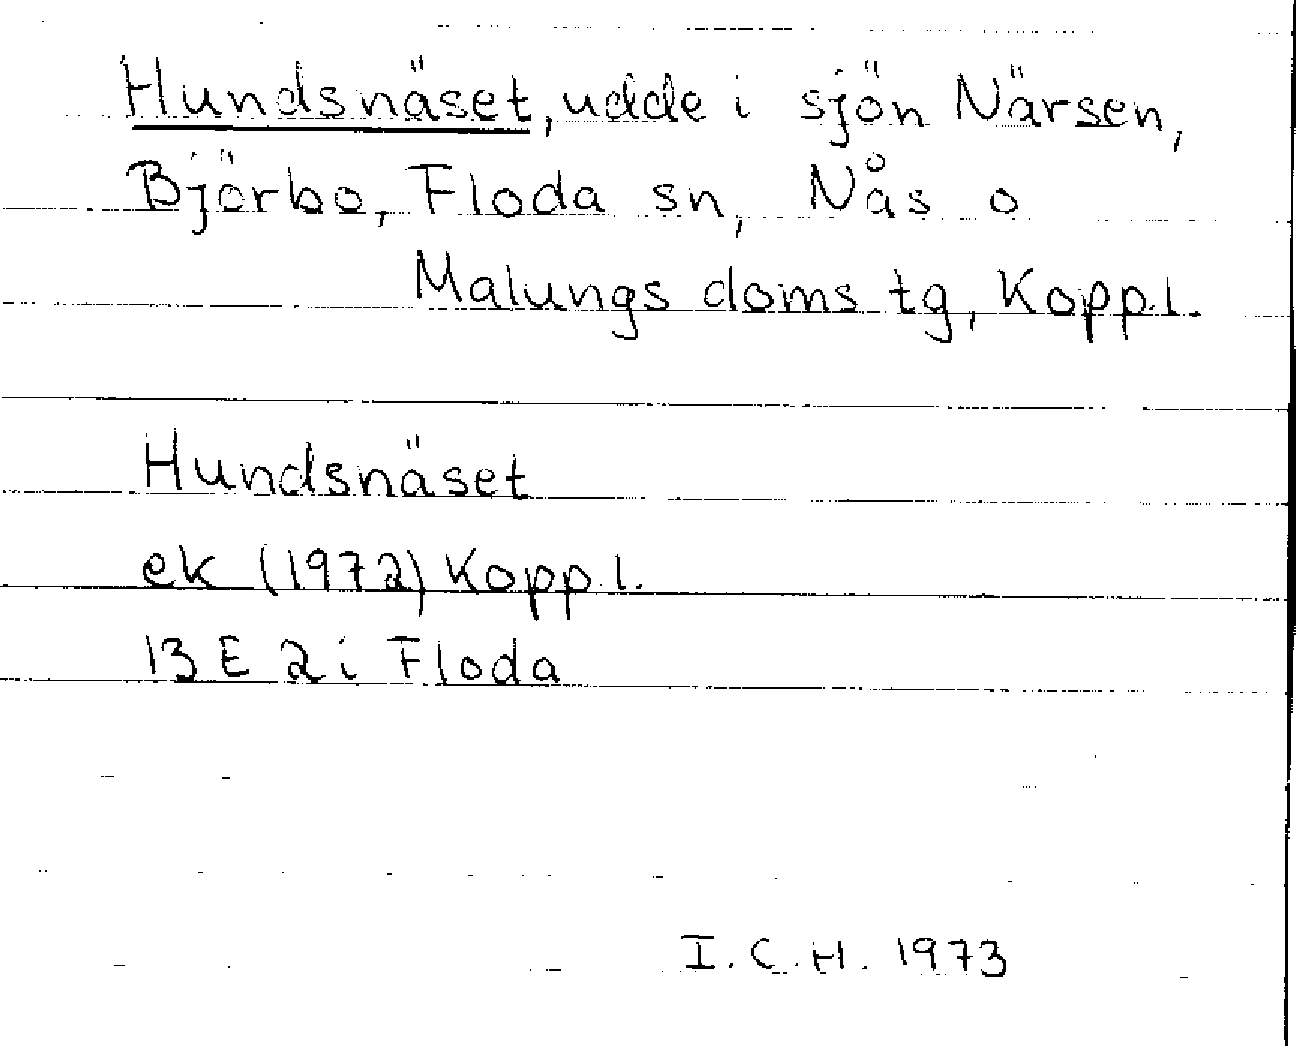 Hundsnäset, udde i sjön Närsen,
Björbo, Floda sn, Nås o
Malungs doms tg, Kopp.l.
Hundsnäset
ek (1972) Kopp.l.
13 E 2 i Floda
I.C.H. 1973